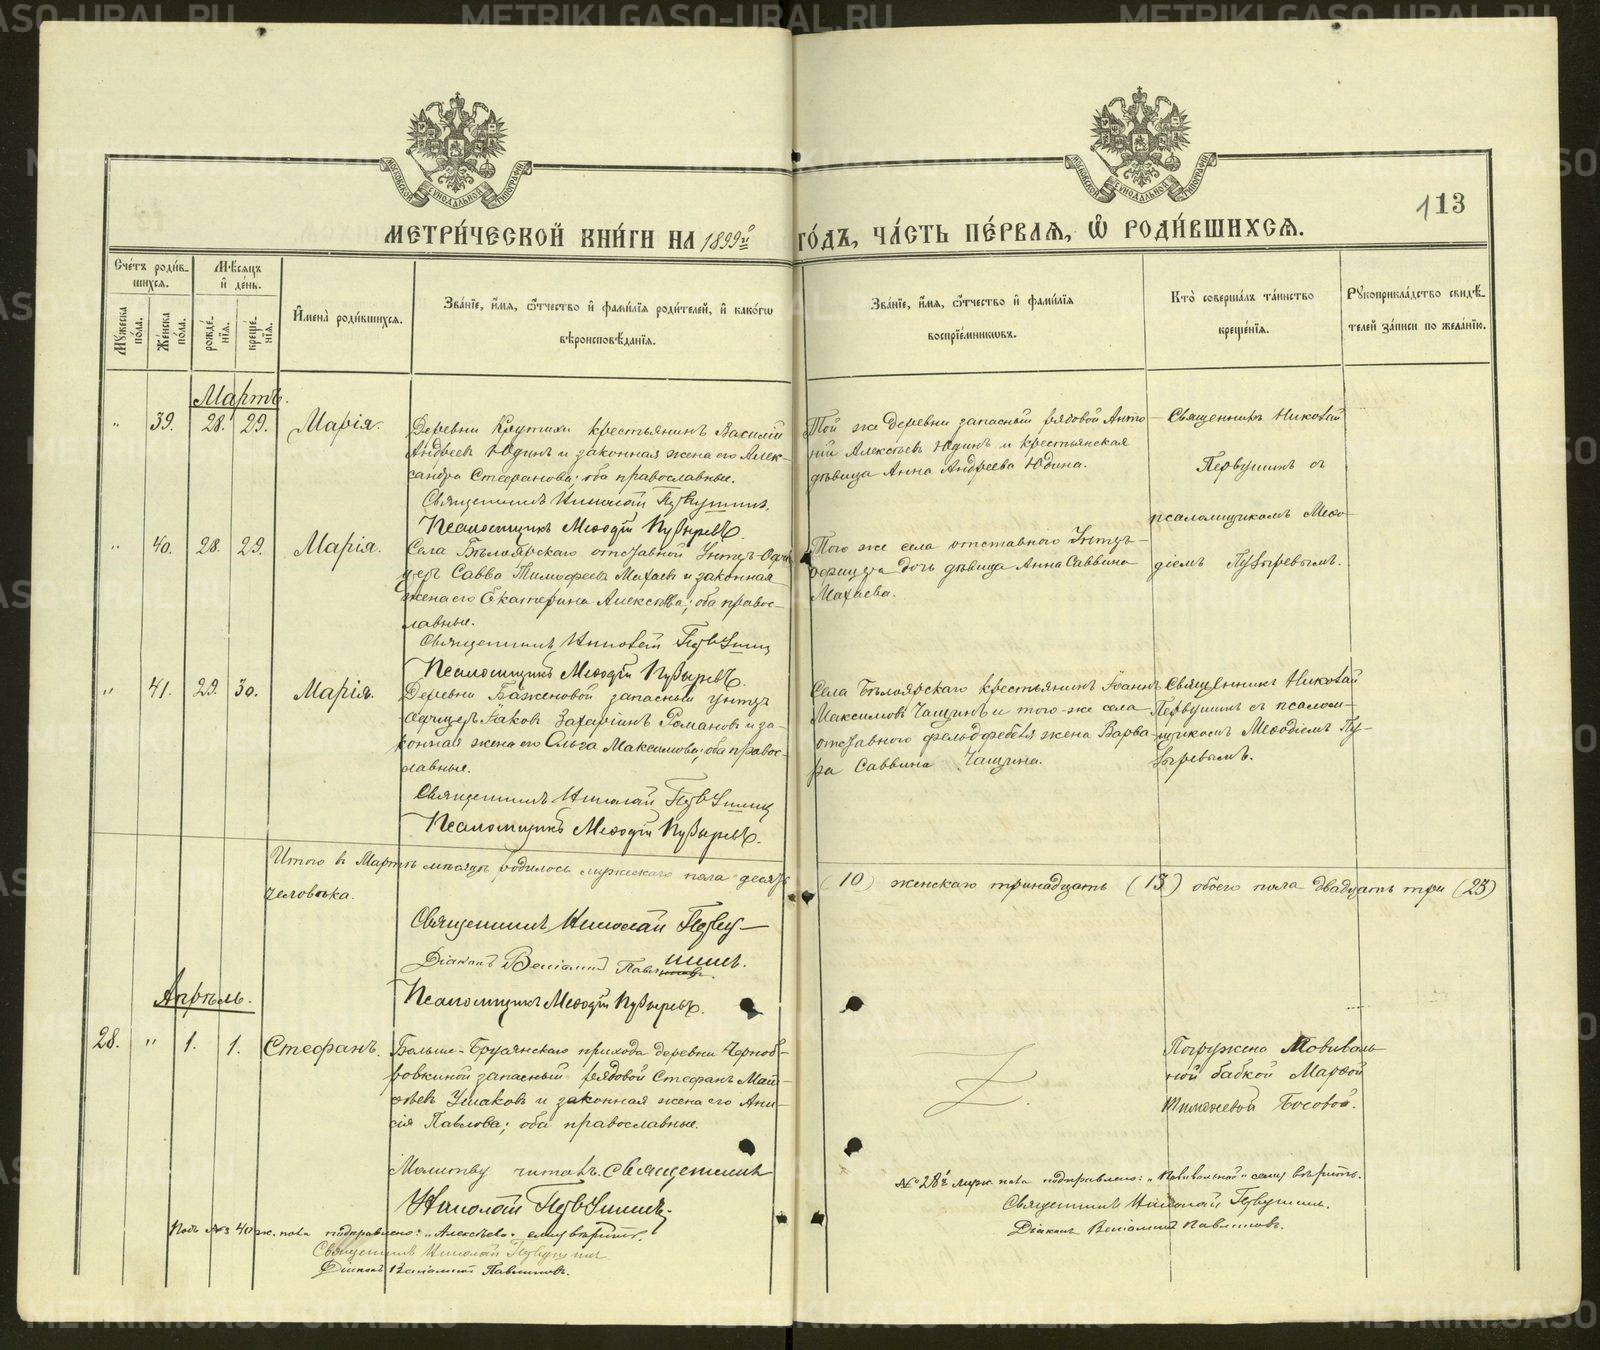 METRIKI.GASO-URAL.RU
МОСКОВСКОЙ СѴНОДАЛЬНОЙ ТИПОГРАФІИ
МОСКОВСКОЙ СѴНОДАЛЬНОЙ ТИПОГРАФІИ
113
МЕТРИ́ЧЕСКОЙ КНИ́ГИ НА 1899й ГО́ДЪ, ЧА́СТЬ ПЕ́РВАЯ, Ѽ РОДИ́ВШИХСЯ.
Сче́тъ роди́в-
шихся.
Мужеска пола.
Же́нска по́ла.
Мѣсяцъ
и де́нь.
рожде́нїя.
креще́нїя.
И҆мена̀ роди́вшихся.
Зва́нїе, и҆́мя, ѻ҆́тчество и҆ фами́лїя роди́телей, и҆ како́гѡ
вѣроисповѣ́данїя.
Зва́нїе, и҆́мя, ѻ҆́тчество и҆ фами́лїя
воспрїе́мниковъ.
Кто̀ соверша́лъ та́инство
креще́нїя.
Рукоприкла́дство свидѣ́-
телей за́писи по жела́нїю.
Мартъ.
" 39. 28. 29. Марія.
Деревни Крутихи крестьянинъ Василій
Андреевъ Юдинъ и законная жена его Алек-
сандра Стефанова; оба православные.
Священникъ Николай Первушинъ.
Псаломщикъ Меѳодій Пузыревъ.
Той же деревни запасный рядовой Анто-
ній Алексѣевъ Юдинъ и крестьянская
дѣвица Анна Андреева Юдина.
Священникъ Николай
Первушинъ съ
псаломщикомъ Меѳо-
діемъ Пузыревымъ.
" 40. 28. 29. Марія.
Села Бѣлоярскаго отставной Унтеръ-Офи-
церъ Савва Тимофеевъ Махаевъ и законная
жена его Екатерина Алексѣева; оба правос-
лавные.
Священникъ Николай Первушинъ
Псаломщикъ Меѳодій Пузыревъ.
Того же села отставного Унтеръ-
офицера дочь дѣвица Анна Саввина
Махаева.
" 41. 29. 30. Марія.
Деревни Баженовой запасный унтеръ
офицеръ Іаковъ Захаріинъ Романовъ и за-
конная жена его Ольга Максимова; оба правос-
лавные.
Священникъ Николай Первушинъ
Псаломщикъ Меѳодій Пузыревъ.
Села Бѣлоярскаго крестьянинъ Іоаннъ
Максимовъ Чащинъ и того-же села
отставного фельдфебеля жена Варва-
ра Саввина Чащина.
Священникъ Николай
Первушинъ съ псалом-
щикомъ Меѳодіемъ Пу-
зыревымъ.
Итого въ Мартѣ мѣсяцѣ родилось мужескаго пола десять (10) женскаго тринадцать (13) обоего пола двадцать три (23)
человѣка.
Священникъ Николай Перву-
шинъ.
Діаконъ Веніаминъ Павлиновъ.
Псаломщикъ Меѳодій Пузыревъ.
Апрѣль.
28. " 1. 1. Стефанъ.
Больше-Брусянскаго прихода деревни Чернобо-
ровкиной запасный рядовой Стефанъ Мат-
ѳѣевъ Ушаковъ и законная жена его Ани-
сія Павлова; оба православные.
Молитву читалъ священникъ
Николай Первушинъ.
Погружено Повиваль-
ной бабкой Марѳой
Тимоѳеевой Босовой.
Подъ № 40 ж. пола подправлено: "Алексѣева" сему вѣрить.
Священникъ Николай Первушинъ
Діаконъ Веніаминъ Павлиновъ.
№ 28й муж. пола подправлено: "Повивальной" сему вѣрить.
Священникъ Николай Первушинъ.
Діаконъ Веніаминъ Павлиновъ.